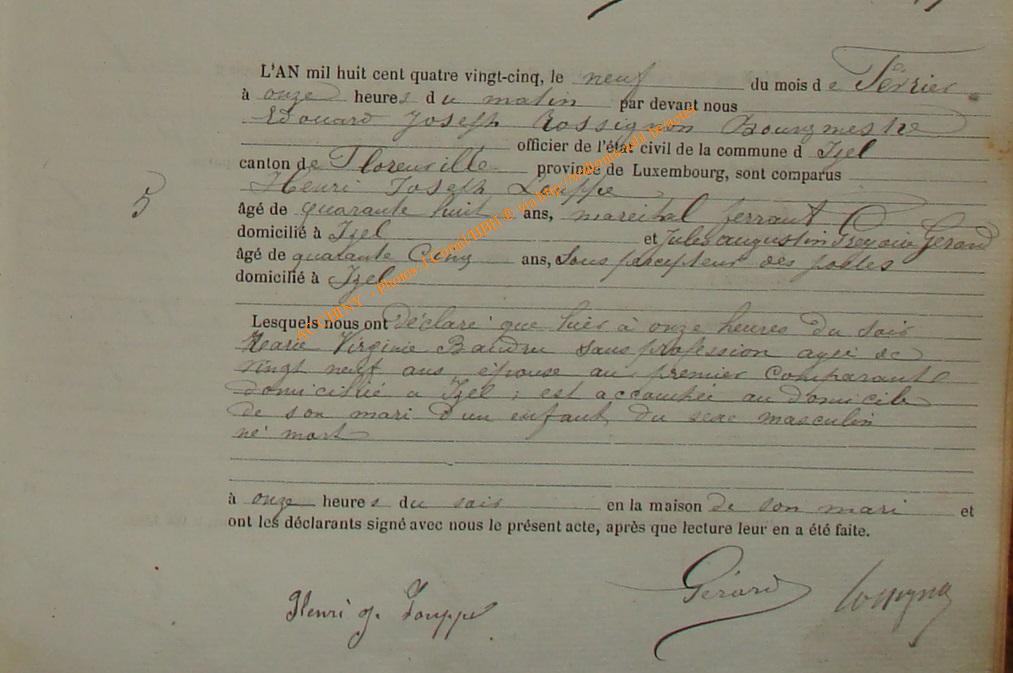 L'AN mil huit cent quatre vingt-cinq, le neuf du mois de Février
à onze heures du matin par devant nous
Edouard Joseph Rossignon Bourgmestre
officier de l'état civil de la commune d Izel
canton de Florenville province de Luxembourg, sont comparus
Henri Joseph Louppe
5
âgé de quarante huit ans, marechal ferrant
domicilié à Izel et Jules augustin Gerard
âgé de quarante Cinq ans, Sous percepteur des postes
domicilié à Izel
Lesquels nous ont déclaré que hier à onze heures du soir
Marie Virginie Baudru sans profession agée de
vingt neuf ans, épouse au premier Comparant
domiciliée a Izel ; est accouchée au domicile
de son mari d'un enfant du sexe masculin
né mort
à onze heures du soir en la maison de son mari et
ont les déclarants signé avec nous le présent acte, après que lecture leur en a été faite.
Henri j. Louppe Gérard